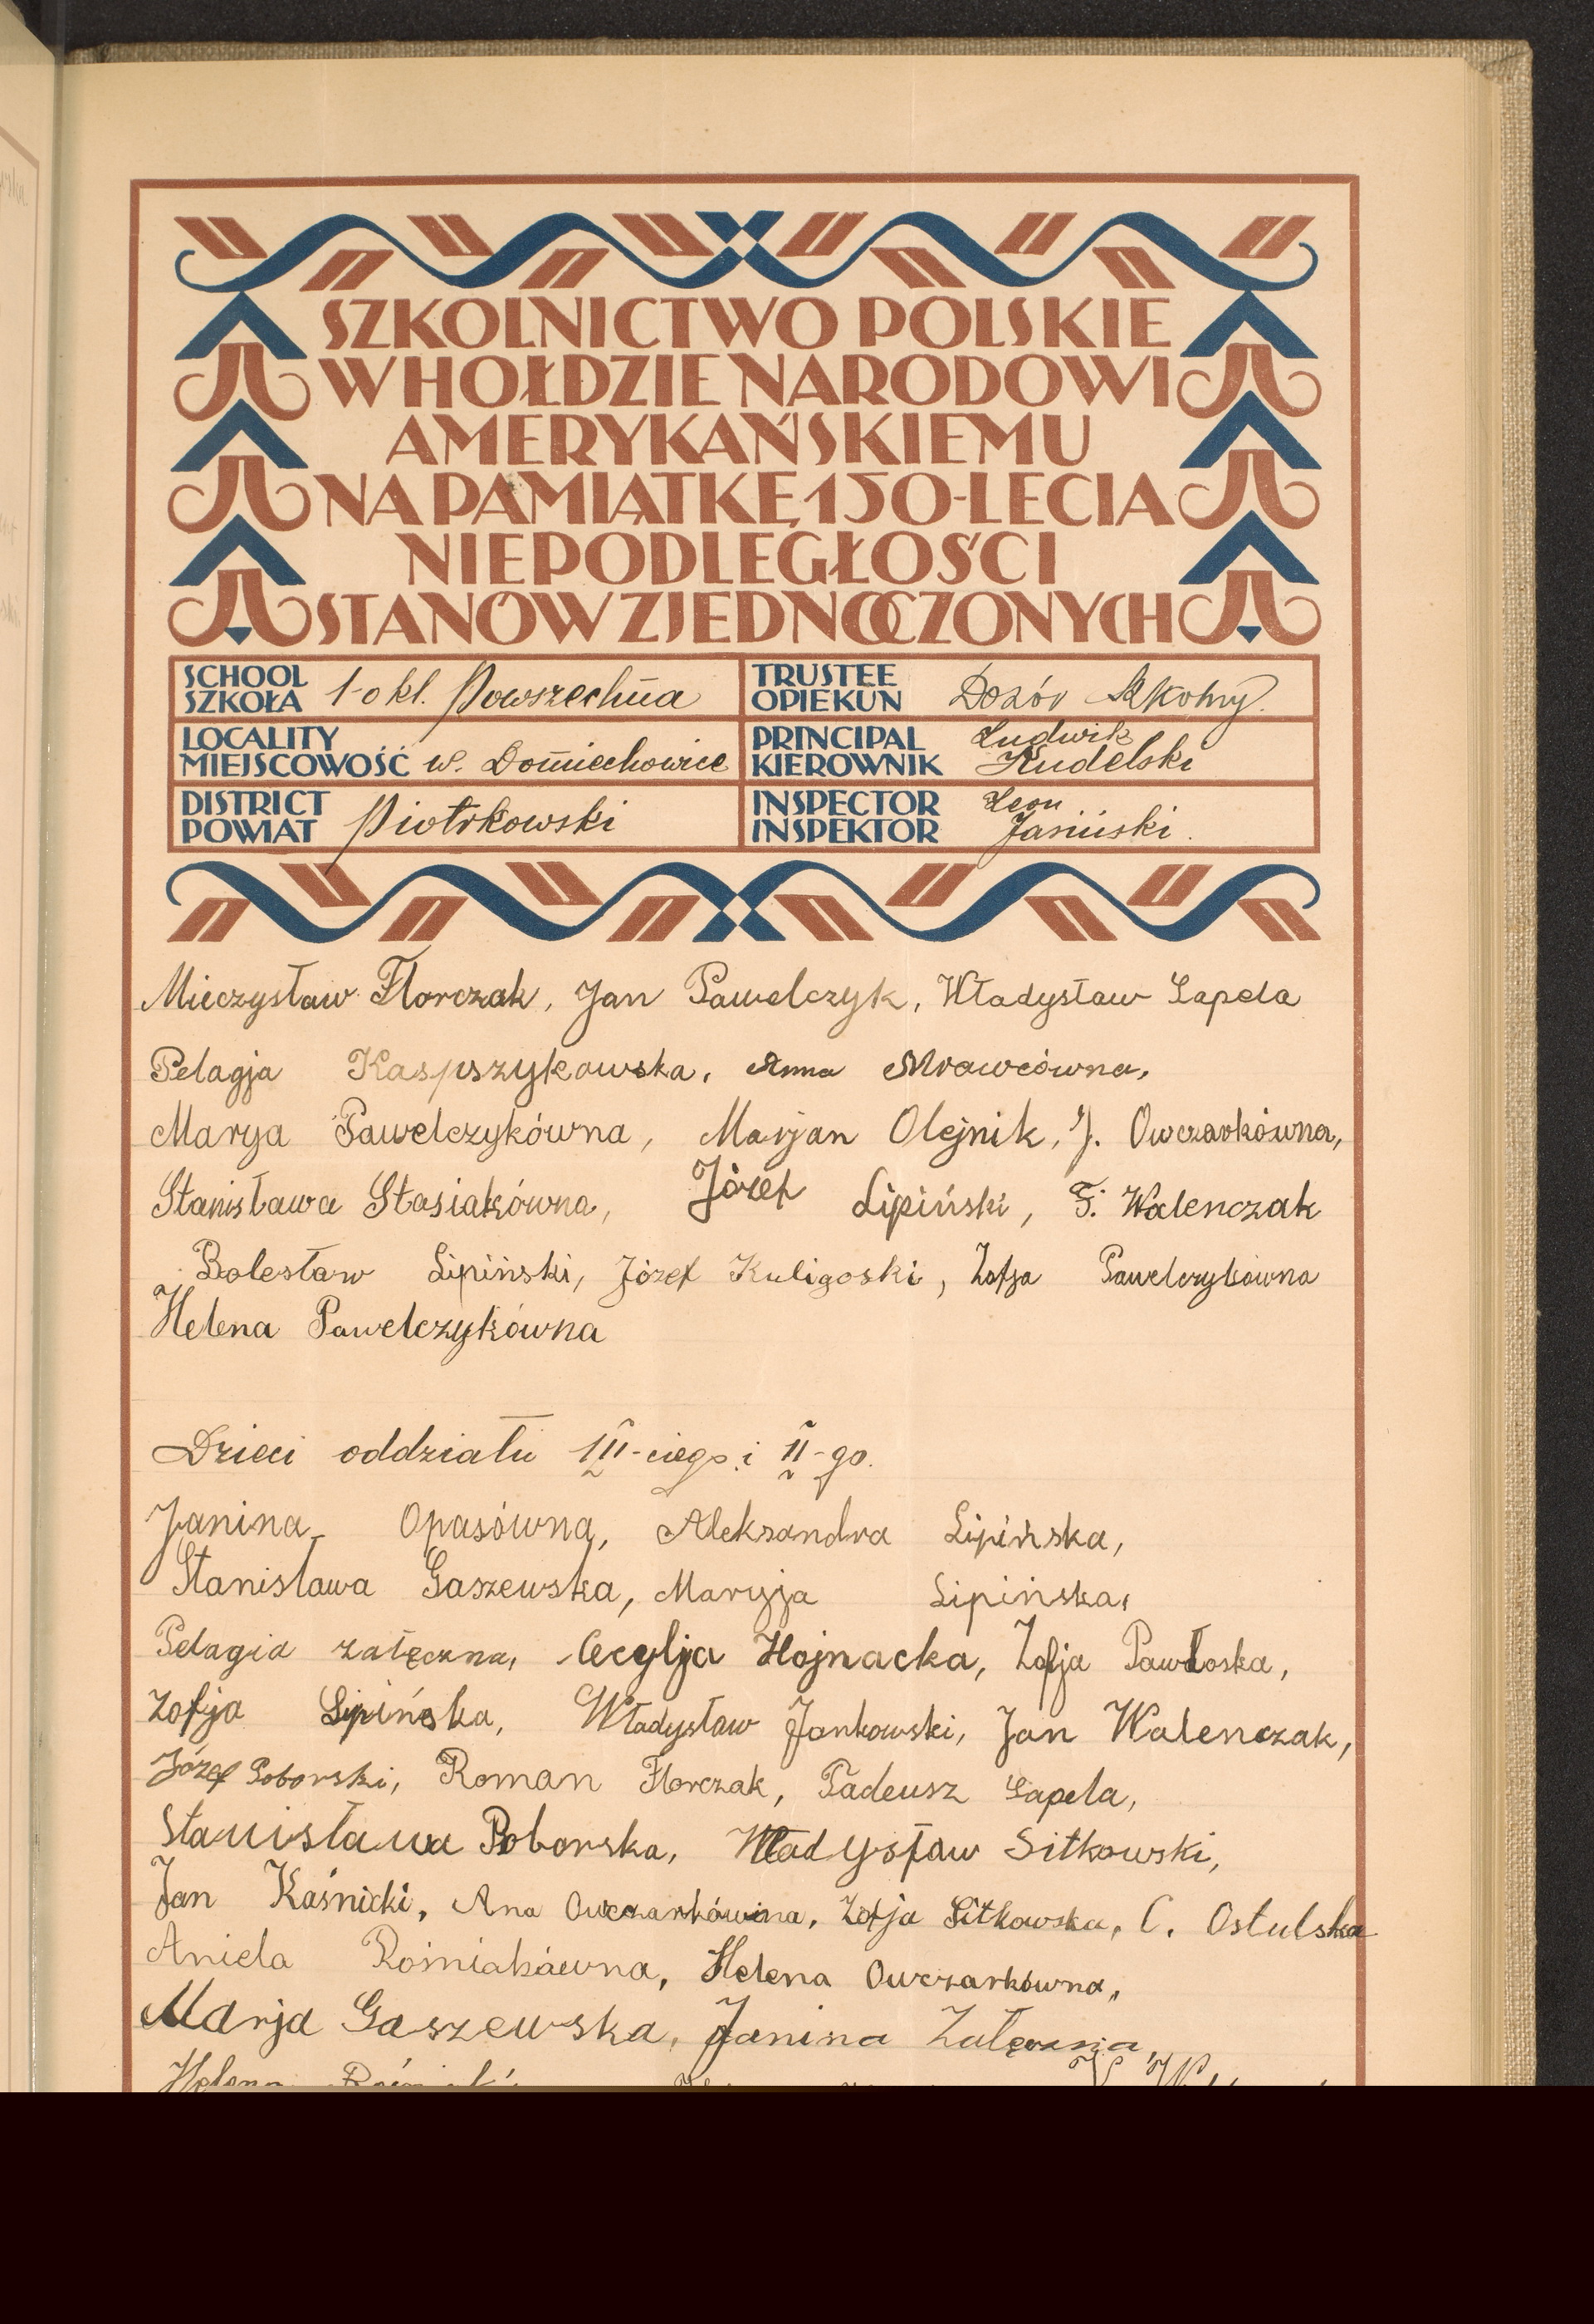 SZKOLNICTWO POLSKIE
W HOŁDZIE NARODOWI
AMERYKAŃSKIEMU
NA PAMIĄTKĘ 150-LECIA
NIEPODLEGŁOŚCI
STANÓW ZJEDNOCZONYCH
SCHOOL
SZKOŁA 1-o kl. Powszechna
TRUSTEE
OPIEKUN Dozór Szkolny.
LOCALITY
MIEJSCOWOŚĆ w. Domiechowice
PRINCIPAL
KIEROWNIK Ludwik Kudelski
DISTRICT
POWIAT Piotrkowski
INSPECTOR
INSPEKTOR Leon Jasiński.
Mieczysław Florczak, Jan Pawelczyk, Władysław Łapeta
Pelagja Kaspszykowska, Anna Mrowcówna,
Marya Pawelczykówna, Marjan Olejnik, J. Owczarkówna,
Stanisława Stasiakówna, Józef Lipiński, F. Walenczak
Bolesław Lipiński, Józef Kuligoski, Zofja Pawelczykówna
Helena Pawelczykówna
Dzieci oddziału III-ciego i II-go.
Janina Opasówna, Aleksandra Lipińska,
Stanisława Gaszewska, Maryja Lipińska,
Pelagia załęczna, Cecylja Hojnacka, Zofja Pawłoska,
Zofja Lipińska, Władysław Jankowski, Jan Walenczak,
Józef Poborski, Roman Florczak, Tadeusz Łapeta,
Stanisława Poborska, Władysław Sitkowski,
Jan Kaśnicki, Ana Owczarkówna, Zofja Sitkowska, C. Ostulska
Aniela Rośniakówna, Helena Owczarkówna,
Marja Gaszewska, Janina Załęczna,
Helena